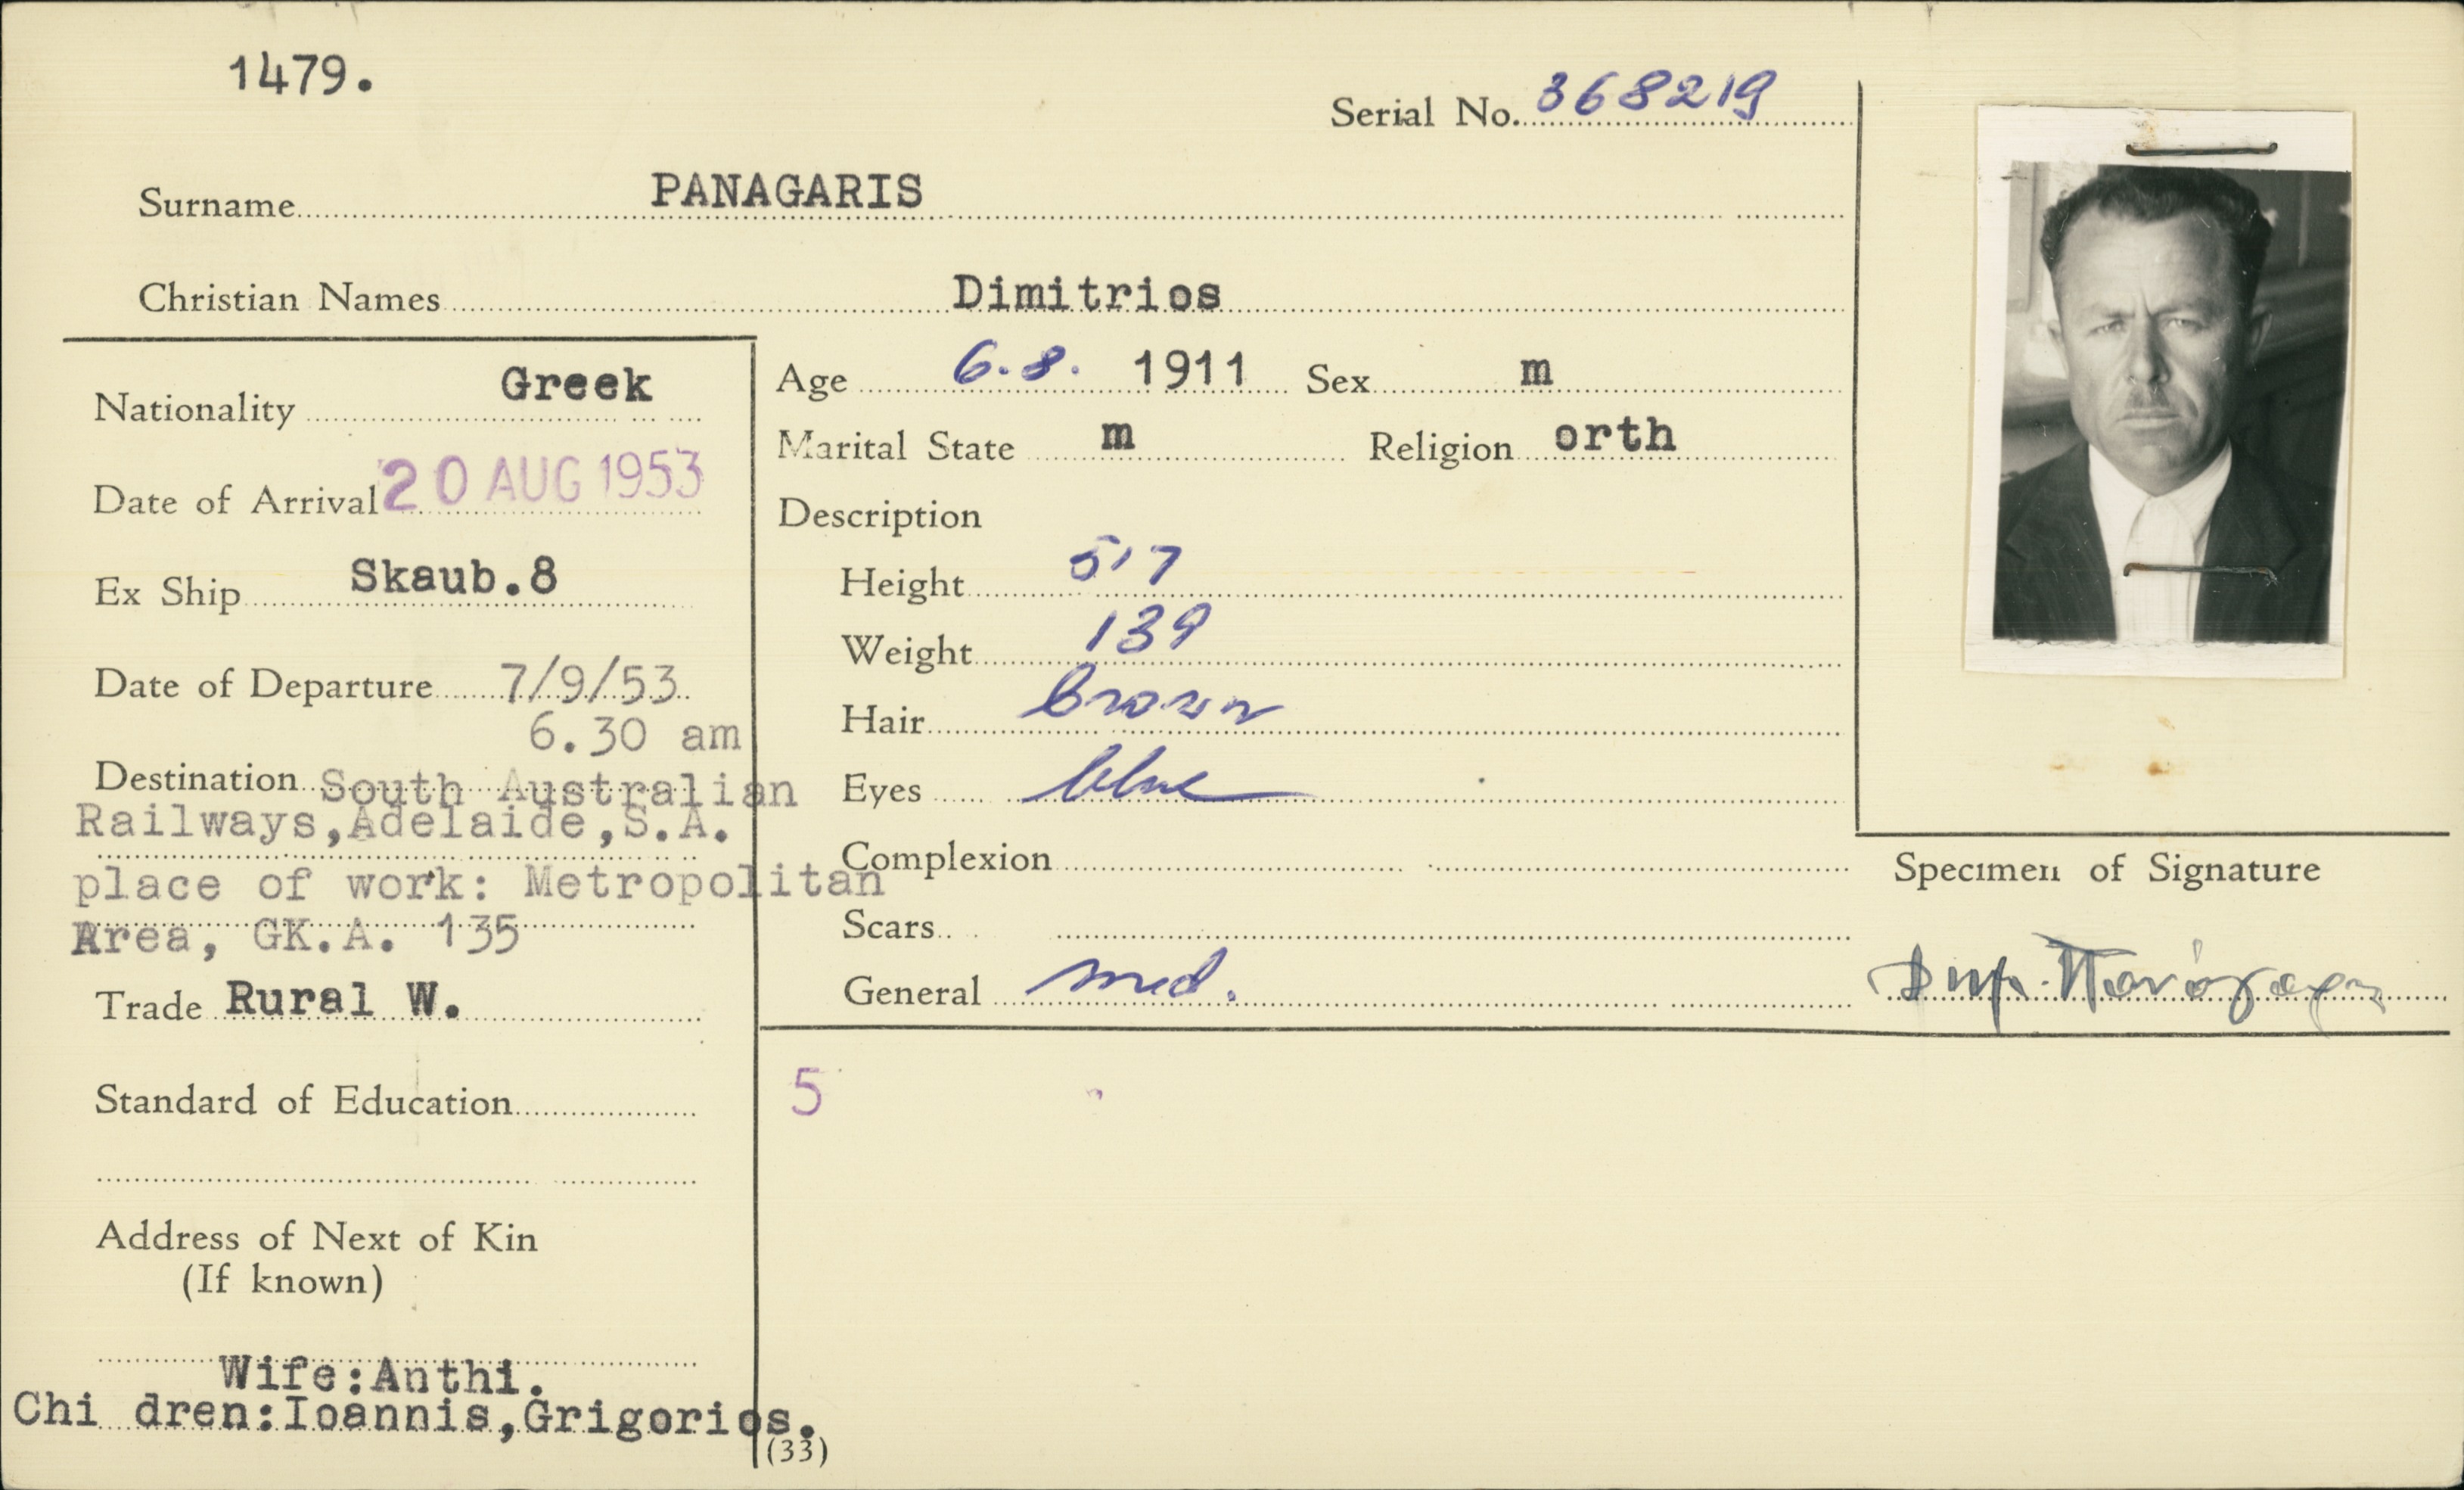 1479.
Serial No. 368219
Surname PANAGARIS
Christian Names Dimitrios
Nationality Greek
Date of Arrival 20 AUG 1953
Ex Ship Skaub.8
Date of Departure 7/9/53
6.30 am
Destination South Australian
Railways,Adelaide,S.A.
place of work: Metropolitan
Area, GK.A. 135
Trade Rural W.
Standard of Education
Address of Next of Kin
(If known)
Wife:Anthi.
Chi dren:Ioannis,Grigorios.
Age 6.8. 1911 Sex m
Marital State m Religion orth
Description
Height 5'7
Weight 139
Hair brown
Eyes blue
Complexion
Scars
General med.
5
(33)
Specimen of Signature